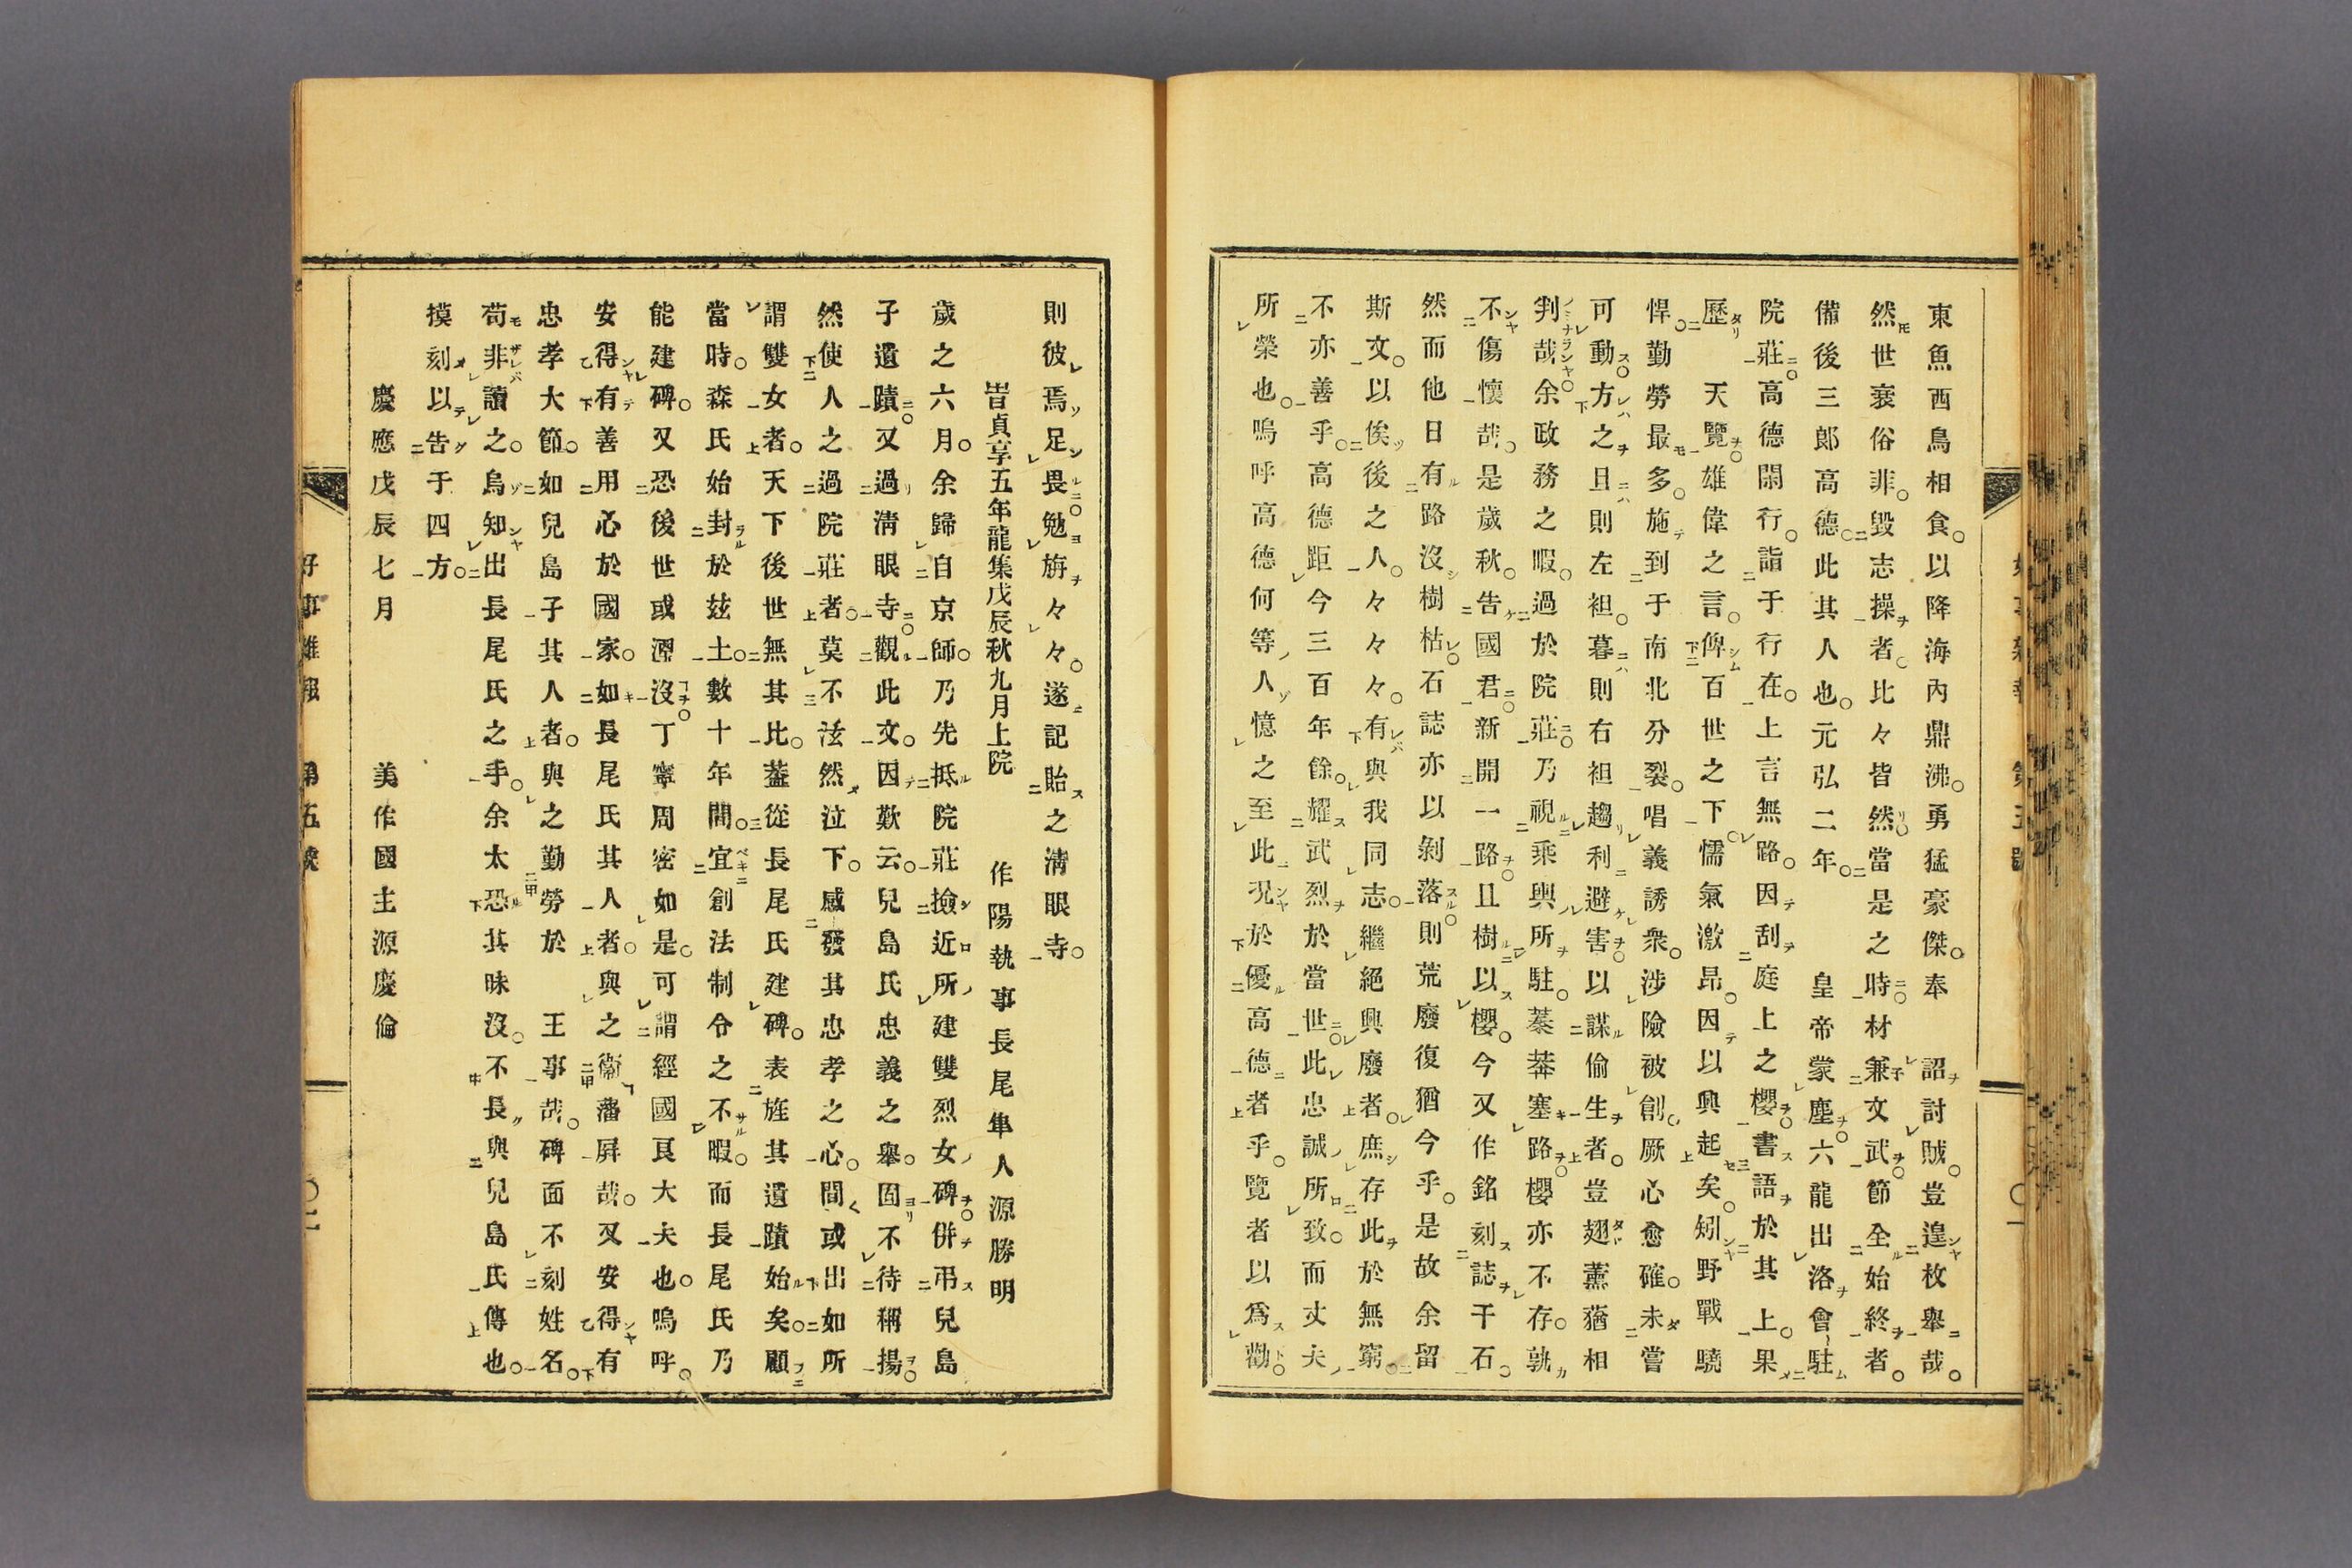 東魚西鳥相食。以降海內鼎沸。勇猛豪傑。奉　詔討賊。豈遑枚舉哉。
然世衰俗非。毀志操者。比々皆然。當是之時材兼文武。節全始終者。
備後三郎高德。此其人也。元弘二年。　皇帝蒙塵。六龍出洛會駐
院莊。高德閑行。詣于行在。上言無路。因刮庭上之櫻。書語於其上。果
歷　天覽。雄偉之言。俾百世之下懦氣激昂。因以興起矣。矧野戰驍
悍。勤勞最多。施到于南北分裂。唱義誘衆。涉險被創。厥心愈確。未嘗
可動。方之且則左袒。暮則右袒趨利避害。以謀偷生者。豈翅薰蕕相
判哉。余政務之暇。過於院莊。乃視乘輿所駐。蓁莽塞路。櫻亦不存。孰
不傷懷哉。是歲秋。告國君。新開一路。且樹以櫻。今又作銘刻誌于石。
然而他日有路沒樹枯。石誌亦以剝落。則荒廢復猶今乎。是故余留
斯文。以俟後之人。々々々。有與我同志。繼絕興廢者。庶存此於無窮。
不亦善乎。高德距今三百年餘。耀武烈於當世。此忠誠所致。而丈夫
所榮也。嗚呼高德何等人憶之至此。况於優高德者乎。覽者以爲勸。
則彼焉足畏。勉旃々々。遂記貽之淸眼寺。
旹貞享五年龍集戊辰秋九月上院　作陽執事長尾隼人源勝明
歲之六月。余歸自京師。乃先抵院莊撿近所建雙烈女碑。併弔兒島
子遺蹟。又過淸眼寺。觀此文。因歎云。兒島氏忠義之舉。固不待稱揚。
然使人之過院莊者。莫不泫然泣下。感發其忠孝之心。間或出如所
謂雙女者。天下後世無其比。蓋從長尾氏建碑。表旌其遺蹟始矣。顧
當時。森氏始封於玆土。數十年間。宜創法制令之不暇。而長尾氏乃
能建碑。又恐後世或湮沒。丁寧周密如是。可謂經國良大夫也。嗚呼。
安得有善用心於國家。如長尾氏其人者。與之衞藩屛哉。又安得有
忠孝大節。如兒島子其人者。與之勤勞於　王事哉。碑面不刻姓名。
苟非讀之。烏知出長尾氏之手。余太恐其昧沒。不長與兒島氏傳也。
摸刻以告于四方。
慶應戊辰七月　美作國主源慶倫
好事雜報　第五號　〇二